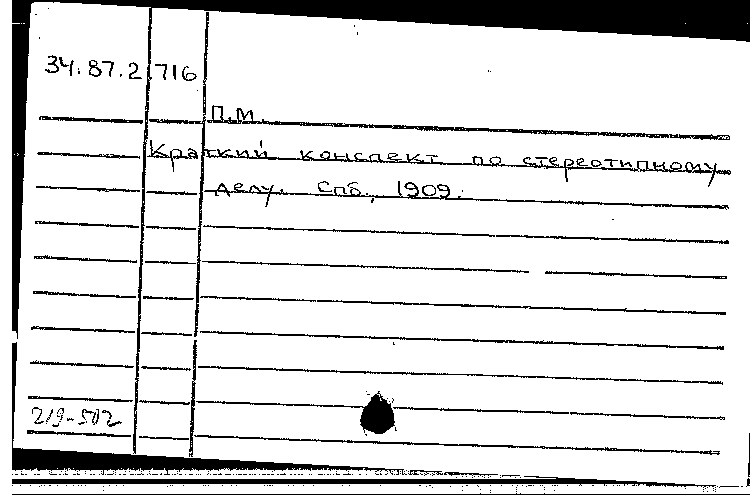 34.87.2.716
П.М.
Краткий конспект по стереотипному
делу. Спб., 1909.
219-502